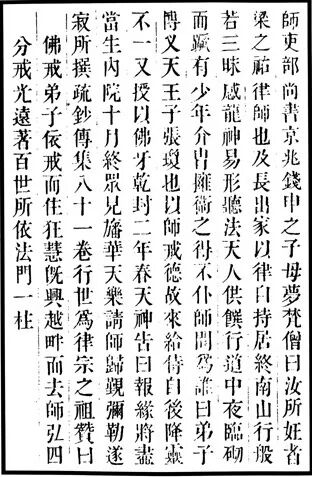 師吏部尚書京兆錢申之子母夢梵僧曰汝所妊者
梁之祐律師也及長出家以律自持居終南山行般
若三昧感龍神易形聽法天人供饌行道中夜臨砌
而蹶有少年介冑擁衛之得不仆師問爲誰曰弟子
博叉天王子張瓊也以師戒德故來給侍自後降靈
不一又授以佛牙乾封二年春天神告曰報緣將盡
當生內院十月終眾見旛華天樂請師歸覲彌勒遂
寂所撰疏鈔傳集八十一卷行世爲律宗之祖贊曰
佛戒弟子依戒而住狂慧旣興越畔而去師弘四
分戒光遠著百世所依法門一柱